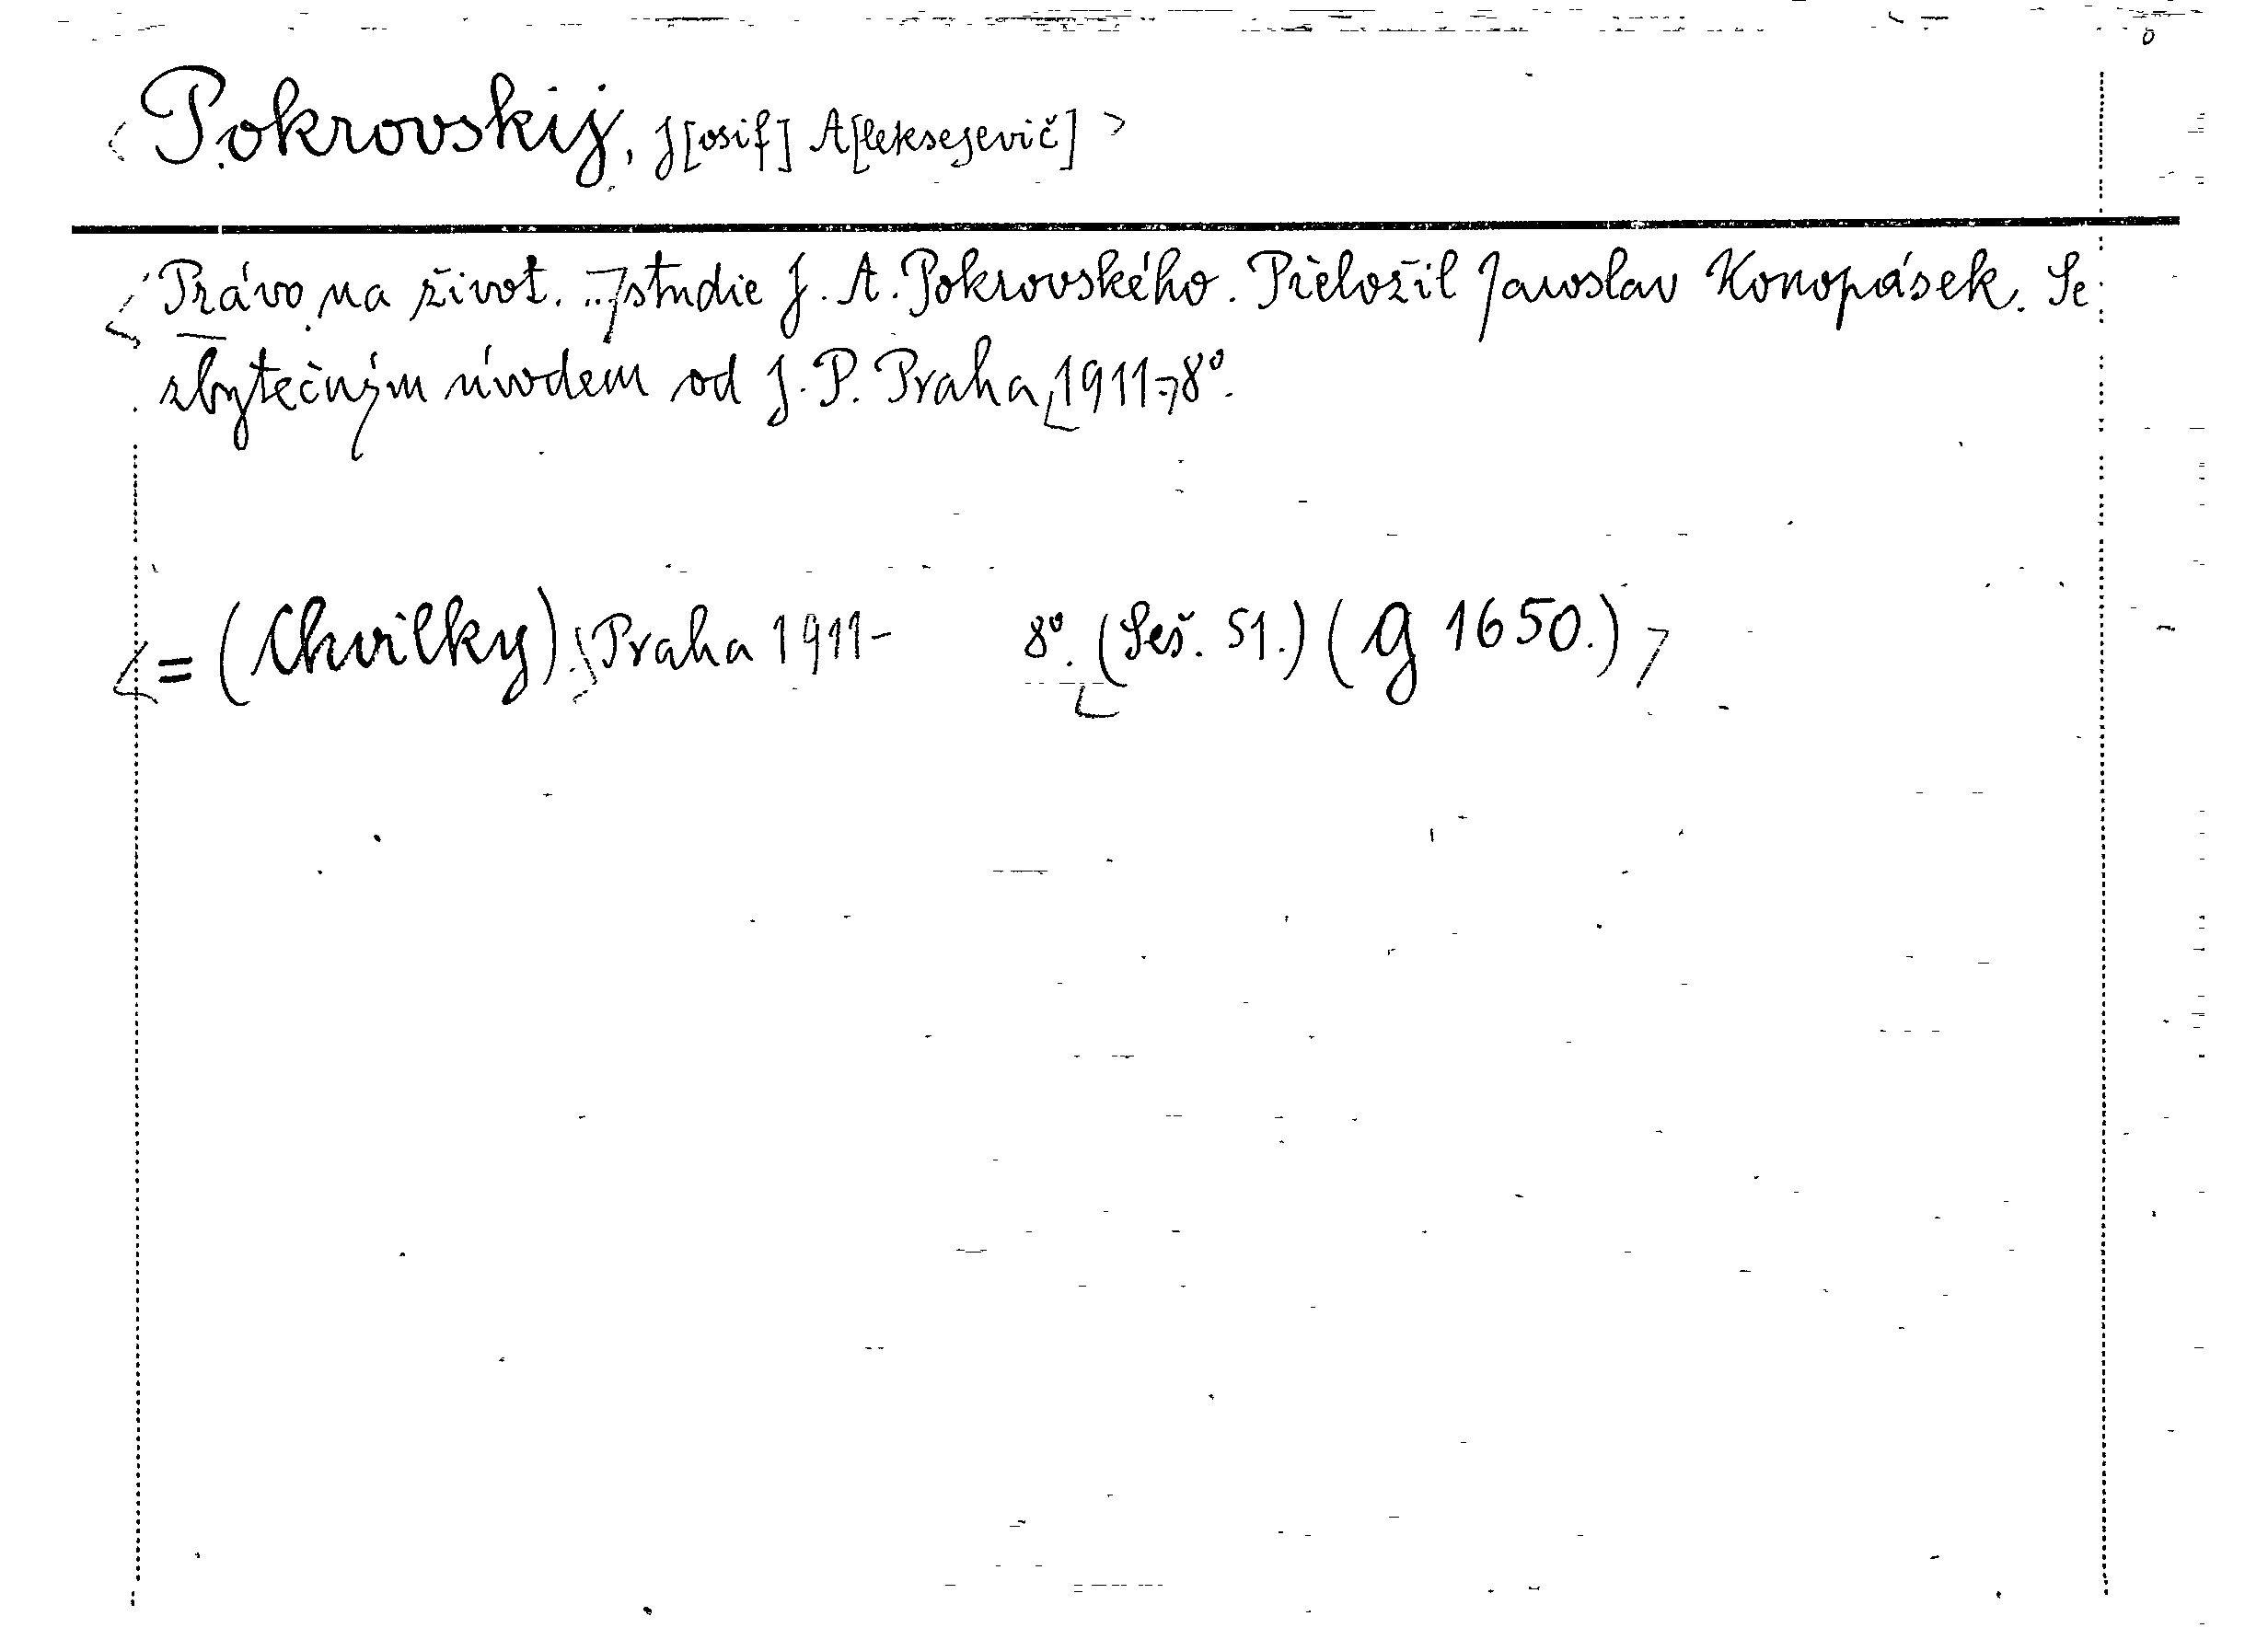 Pokrovskij, J[osif] A[leksejevič]
Právo na život. .. studie J. A. Pokrovského. Přeložil Jaroslav Konopásek. Se
zbytečným úvodem od J. P. Praha 1911-8°.
=(Chvilky) Praha 1911- 8°. (Seš. 51.) (G 1650.)